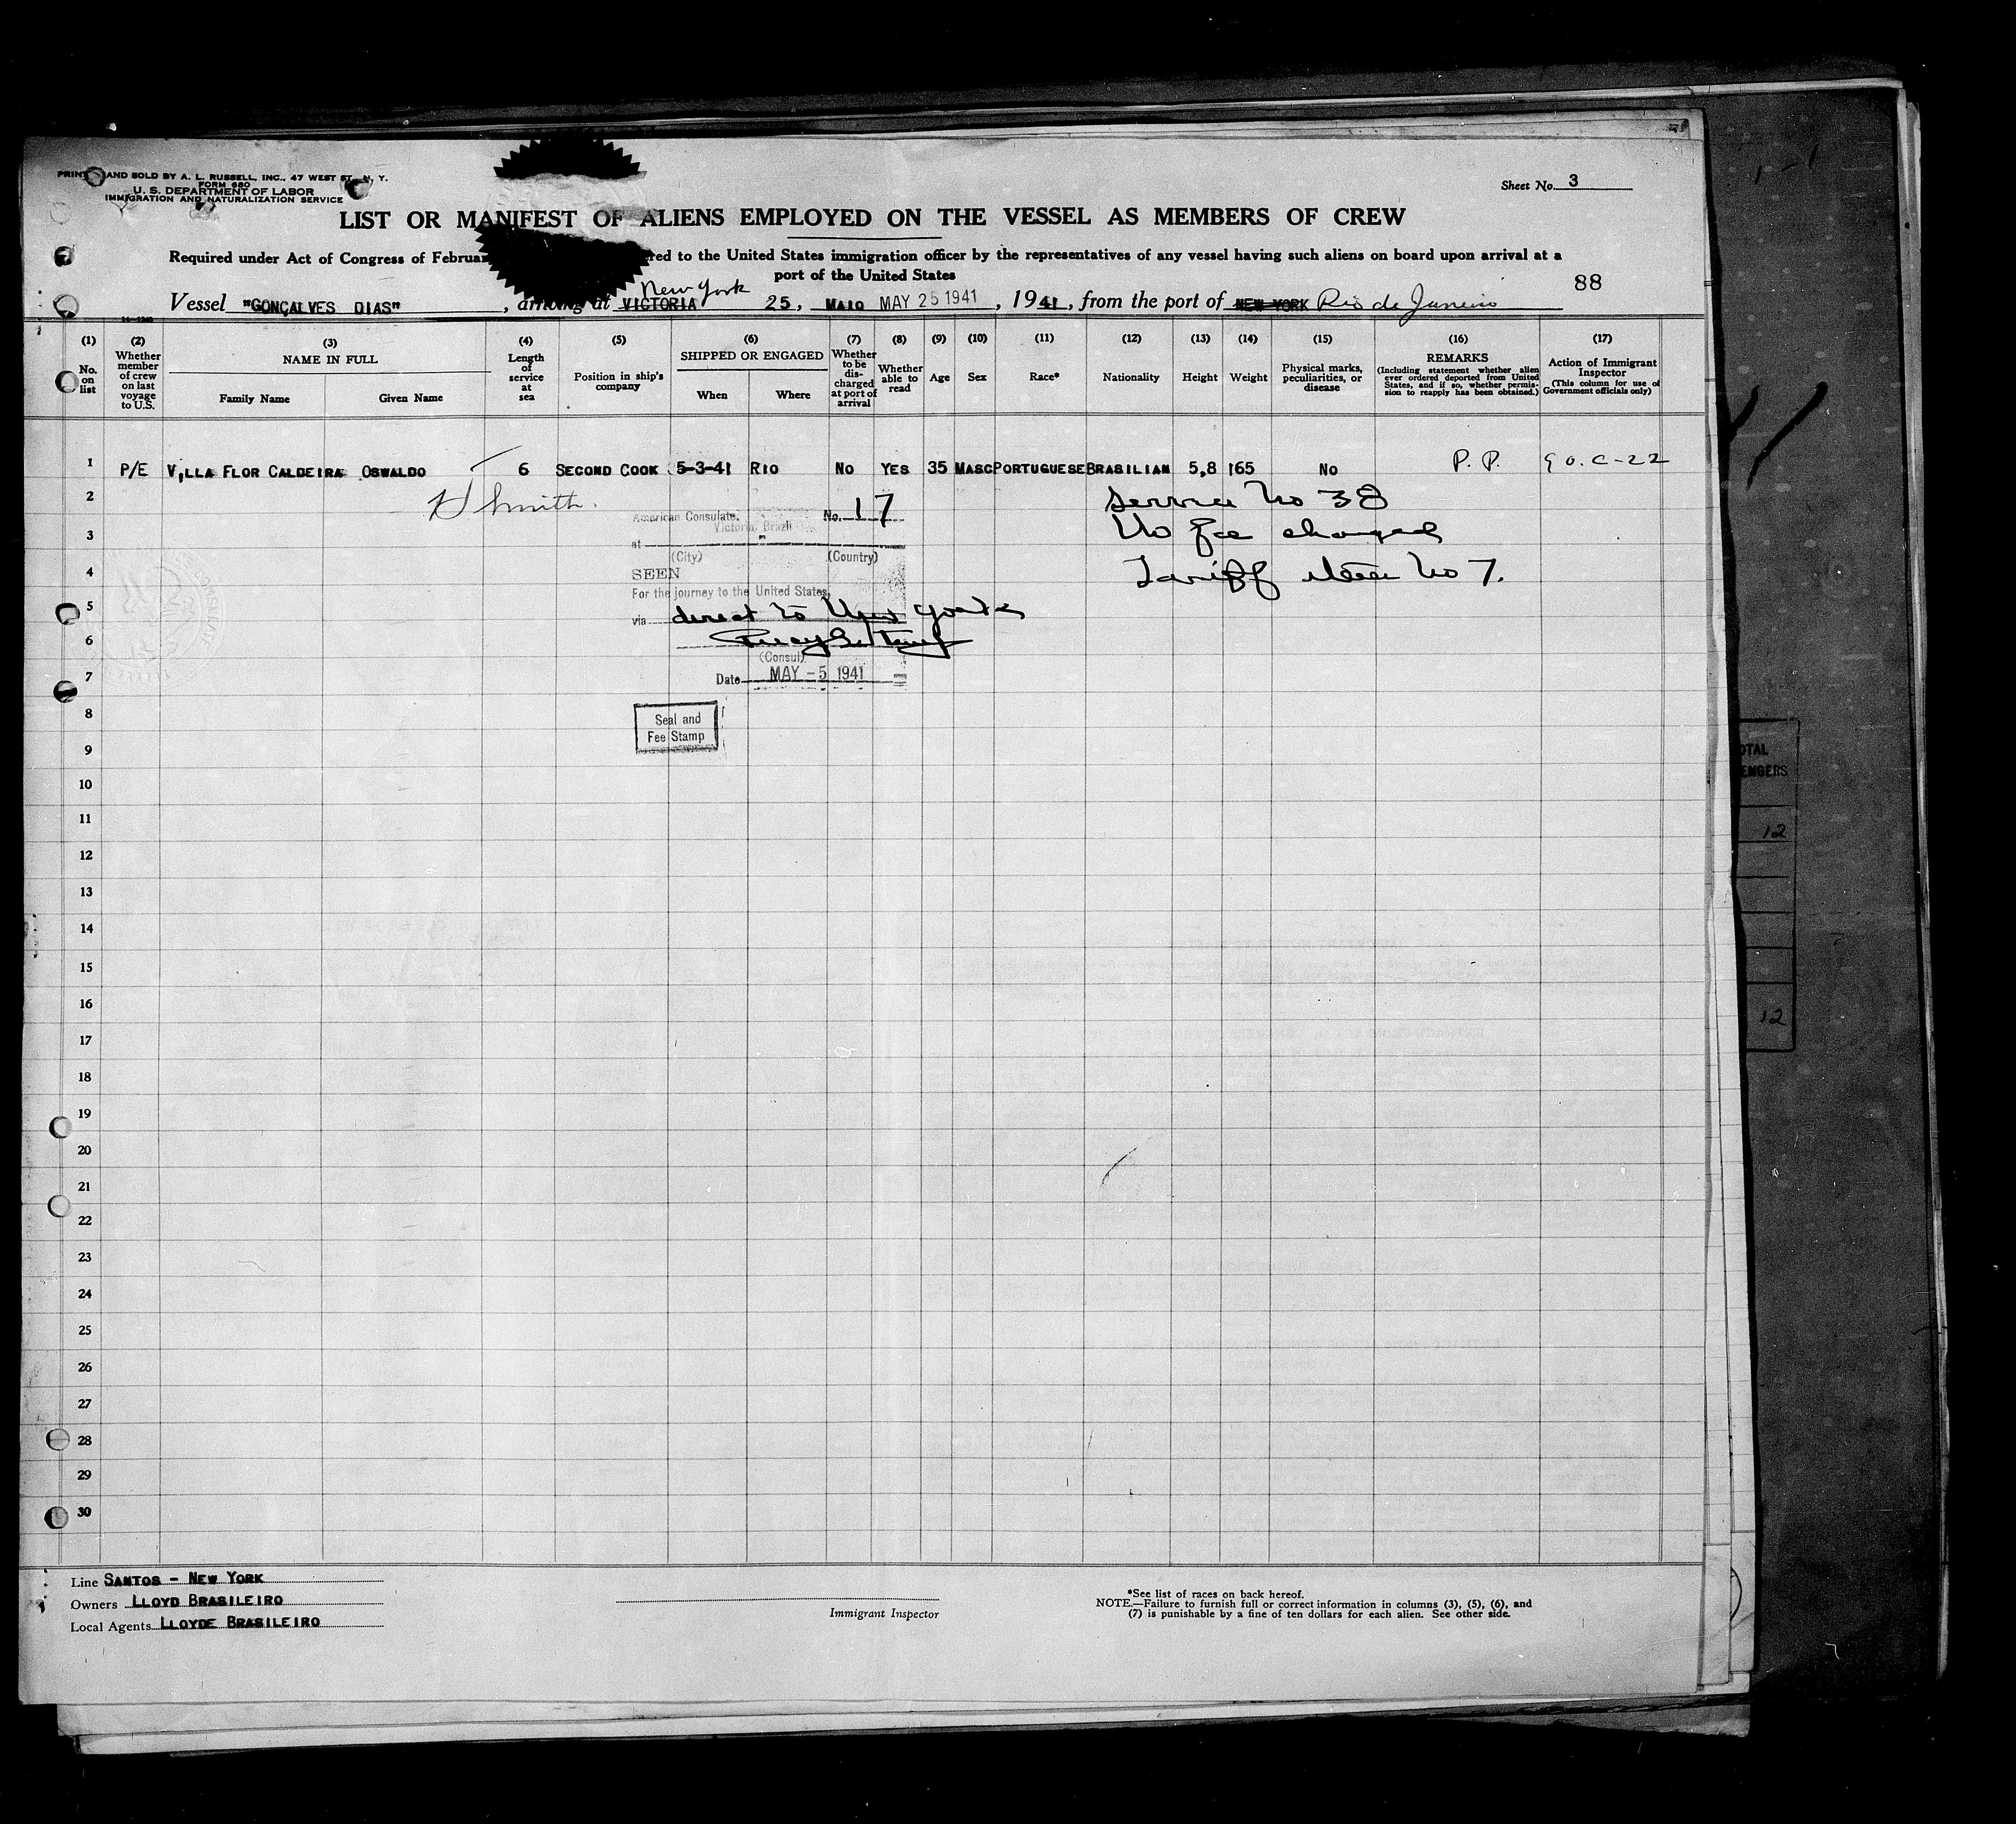 AND SOLD BY A. L. RUSSELL, INC., 47 WEST ST., N. Y.
FORM 680
U. S. DEPARTMENT OF LABOR
IMMIGRATION AND NATURALIZATION SERVICE
Sheet No. 3
LIST OR MANIFEST OF ALIENS EMPLOYED ON THE VESSEL AS MEMBERS OF CREW
Required under Act of Congress of to the United States immigration officer by the representatives of any vessel having such aliens on board upon arrival at a
port of the United States
88
New York
Vessel "GONÇALVES DIAS", arriving at VICTORIA 25, MAIO MAY 25 1941, 1941, from the port of NEW YORK Rio de Janeiro
14-1240
(1) No. on list
(2) Whether member of crew on last voyage to U.S.
(3) NAME IN FULL
Family Name Given Name
(4) Length of service at sea
(5) Position in ship's company
(6) SHIPPED OR ENGAGED
When Where
(7) Whether to be discharged at port of arrival
(8) Whether able to read
(9) Age
(10) Sex
(11) Race*
(12) Nationality
(13) Height
(14) Weight
(15) Physical marks, peculiarities, or disease
(16) REMARKS
(Including statement whether alien ever ordered deported from United States, and if so, whether permission to reapply has been obtained.)
(17) Action of Immigrant Inspector
(This column for use of Government officials only)
1 P/E VILLA FLOR CALDEIRA OSWALDO 6 SECOND COOK 5-3-41 RIO NO YES 35 MASC PORTUGUESE BRASILIAN 5,8 165 NO P. P. 90. C-22
2 H Smith. Service No 38
American Consulate, No. 17
Victoria, Brazil
3 No fee charged
at
(City) (Country)
4 Tariff item No 7.
SEEN
For the journey to the United States,
5
via direct to New York
6
(Consul)
7
Date MAY -5 1941
8 Seal and
Fee Stamp
9
10
11
12
13
14
15
16
17
18
19
20
21
22
23
24
25
26
27
28
29
30
Line SANTOS - NEW YORK
Owners LLOYD BRASILEIRO
Local Agents LLOYDE BRASILEIRO
Immigrant Inspector
*See list of races on back hereof.
NOTE.—Failure to furnish full or correct information in columns (3), (5), (6), and
(7) is punishable by a fine of ten dollars for each alien. See other side.
OTAL
ENGERS
12
12